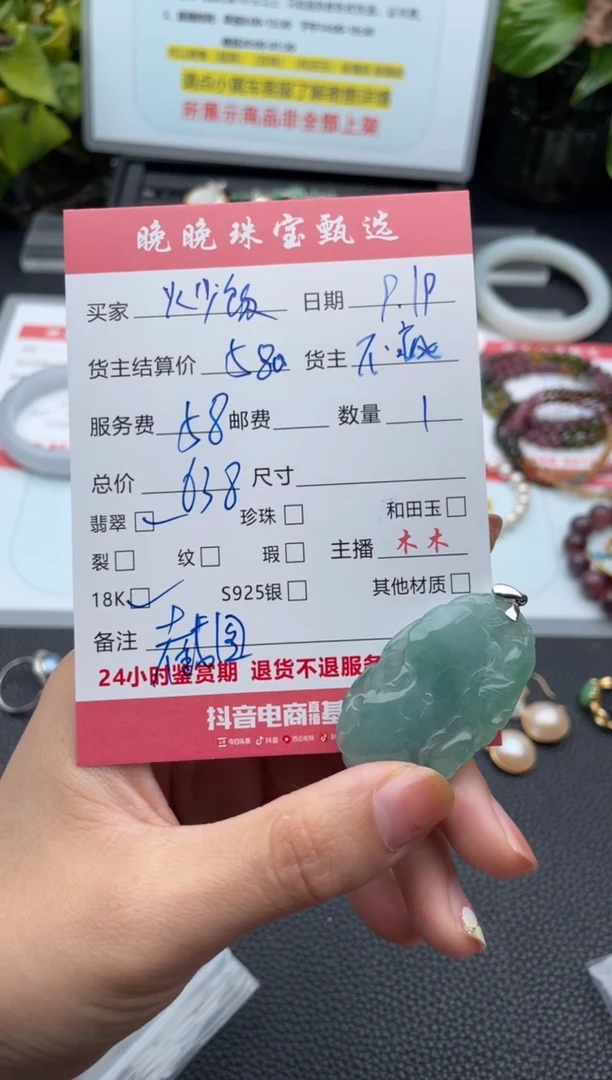 请点小黄车客服了解寄售详情
所展示商品非全部上架
晚晚珠宝甄选
买家 炒饭 日期 9.19
货主结算价 580 货主
服务费 58 邮费 数量 1
总价 638 尺寸
翡翠 珍珠 和田玉
裂 纹 瑕 主播 木木
18K S925银 其他材质
备注 截图
24小时鉴赏期 退货不退服务
抖音电商直播基
今日头条 抖音 西瓜视频